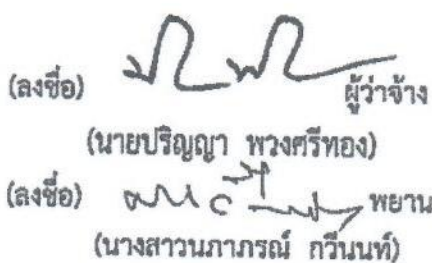 (ลงชื่อ) ผู้ว่าจ้าง
(นายปริญญา พวงศรีทอง)
(ลงชื่อ) พยาน
(นางสาวนภาภรณ์ กวีนนท์)